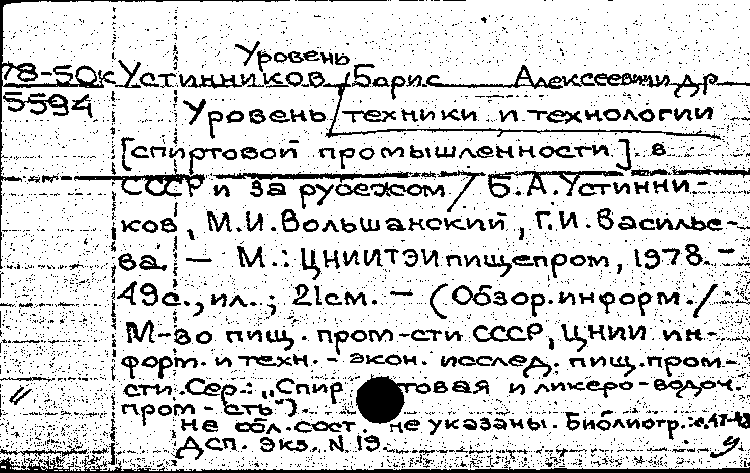 Уровень
78-50к Устинников, Борис Алексеевич и др
5594 Уровень техники и технологии
[спиртовой промышленности] в
СССР и за рубежом / Б.А.Устинни-
ков, М.И.Вольшанский, Г.И.Василье-
ва. — М.: ЦНИИТЭИпищепром, 1978. —
49с., ил.; 21см. — (Обзор.информ./
М-во пищ. пром-сти СССР, ЦНИИ ин-
форм. и техн.-экон. исслед. пищ.пром-
сти. Сер.: „Спиртовая и ликеро-водоч.
пром-сть").
не обл. сост. не указаны. Библиогр.: с.47-
Дсп. Экз. N 19.